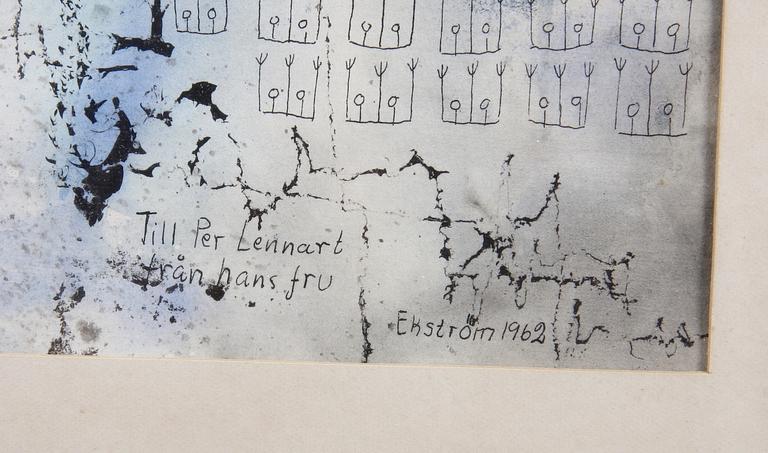 Till Per Lennart
från hans fru
Ekström 1962